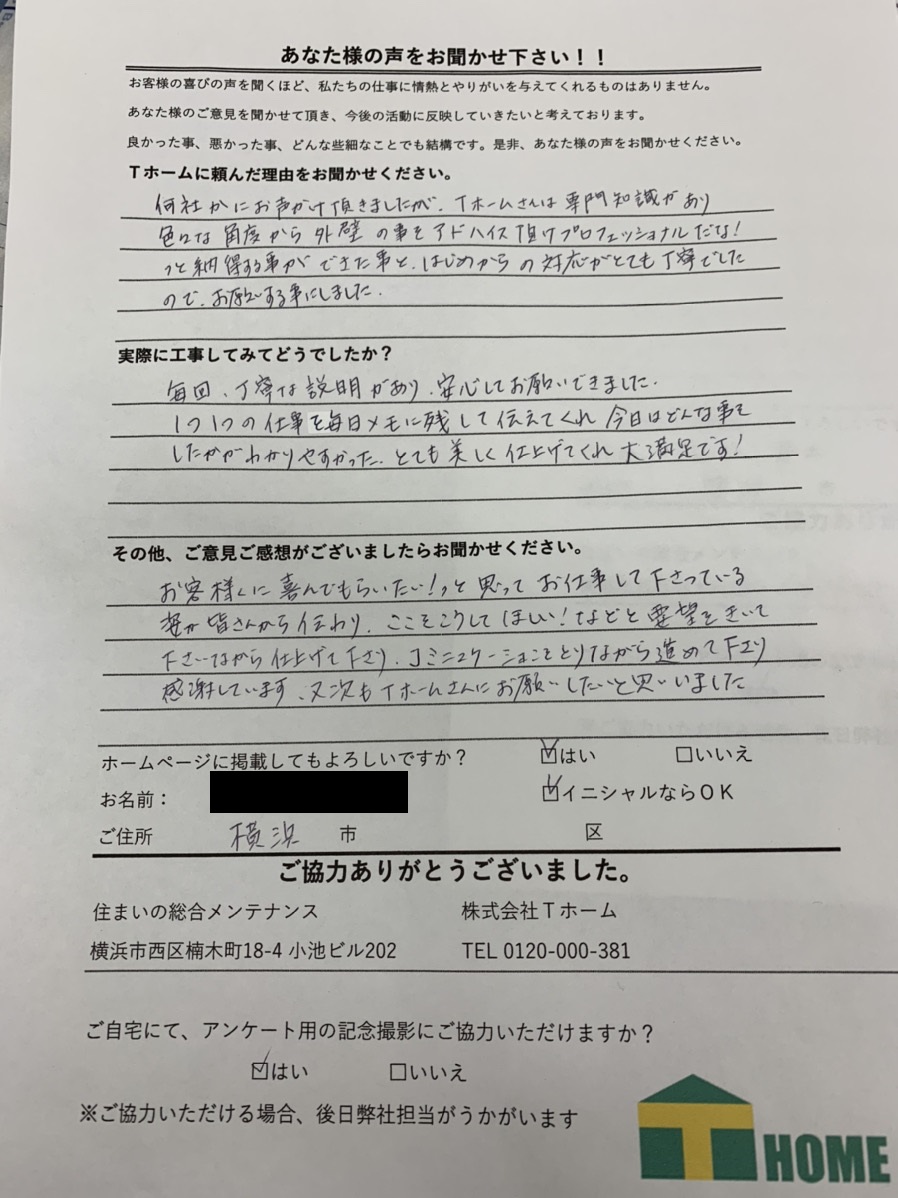 あなた様の声をお聞かせ下さい！！
お客様の喜びの声を聞くほど、私たちの仕事に情熱とやりがいを与えてくれるものはありません。
あなた様のご意見を聞かせて頂き、今後の活動に反映していきたいと考えております。
良かった事、悪かった事、どんな些細なことでも結構です。是非、あなた様の声をお聞かせください。
Ｔホームに頼んだ理由をお聞かせください。
何社かにお声がけ頂きましたが、Tホームさんは専門知識があり
色々な角度から外壁の事をアドバイス頂けプロフェッショナルだな!
っと納得する事ができた事と、はじめからの対応がとても丁寧でした
ので、お願いする事にしました。
実際に工事してみてどうでしたか？
毎回、丁寧な説明があり、安心してお願いできました。
1つ1つの仕事を毎日メモに残して伝えてくれ今日はどんな事を
したかがわかりやすかった。とても美しく仕上げてくれ大満足です!
その他、ご意見ご感想がございましたらお聞かせください。
お客様に喜んでもらいたい!っと思ってお仕事して下さっている
姿が皆さんから伝わり、ここをこうしてほしい!などと要望をきいて
下さいながら仕上げて下さり、コミニュケーションをとりながら進めて下さり
感謝しています、又次もTホームさんにお願いしたいと思いました
ホームページに掲載してもよろしいですか？ ☑はい □いいえ
お名前： ☑イニシャルならＯＫ
ご住所 横浜 市 区
ご協力ありがとうございました。
住まいの総合メンテナンス 株式会社Ｔホーム
横浜市西区楠木町18-4 小池ビル202 TEL 0120-000-381
ご自宅にて、アンケート用の記念撮影にご協力いただけますか？
☑はい □いいえ
※ご協力いただける場合、後日弊社担当がうかがいます
T HOME